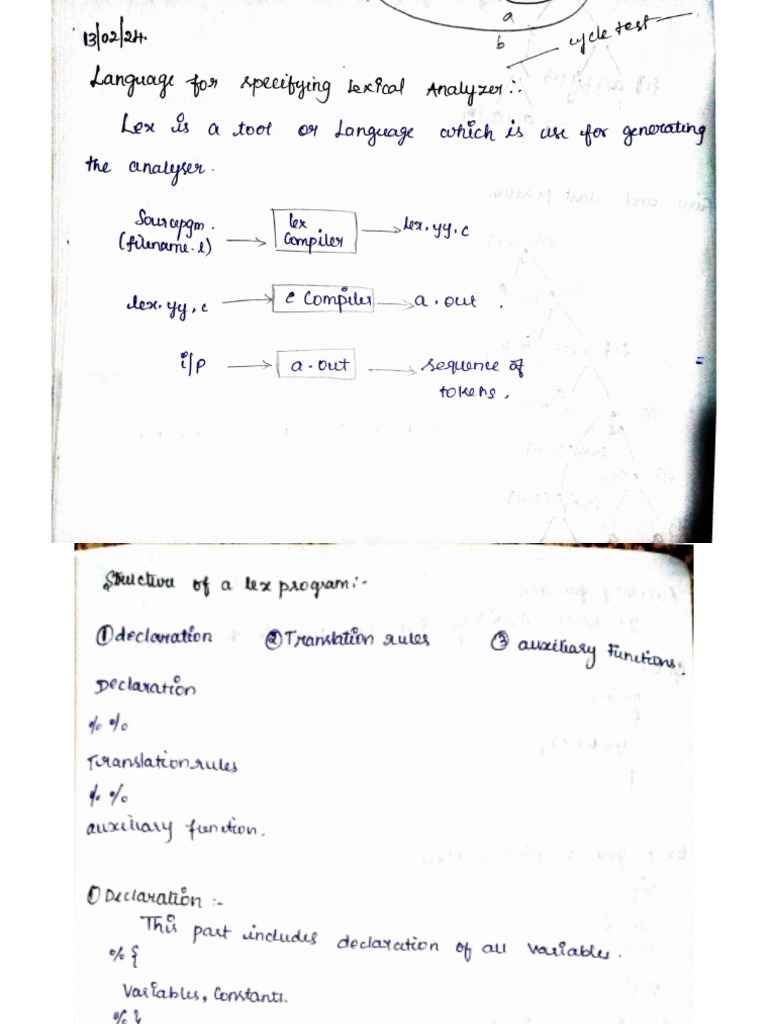 a
b
13/02/24.
cycle test
Language for specifying Lexical Analyzer:-
Lex is a tool or Language which is use for generating
the analyser.
Sourcepgm.
(filename.l)
lex
Compiler
lex.yy.c
lex.yy.c
C Compiler
a.out
i/p
a.out
sequence of
tokens.
Structure of a lex program:-
① declaration ② Translation rules ③ auxiliary Functions.
Declaration
%%
Translation rules
%%
auxiliary function.
① Declaration :-
This part includes declaration of all variables.
%{
Variables, Constants.
%}